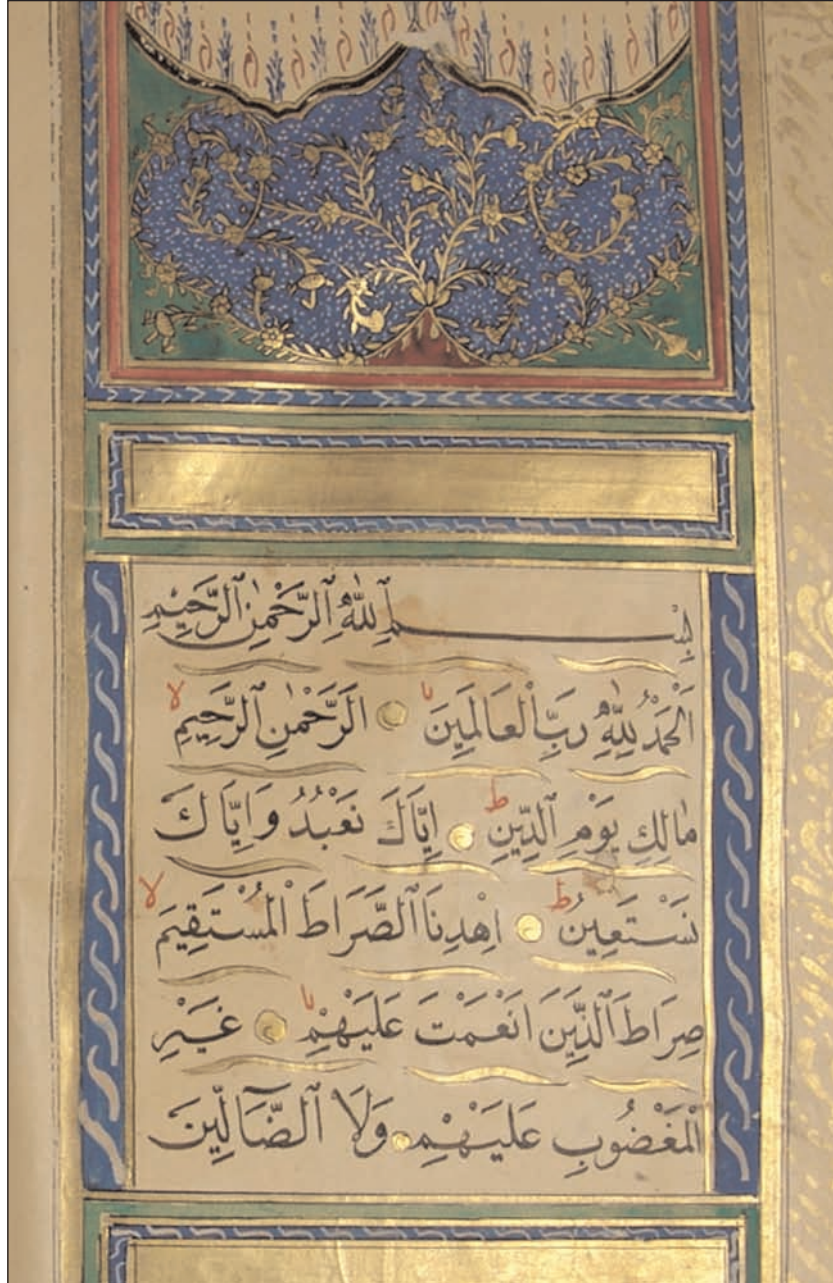 بِسْمِ ٱللّٰهِ ٱلرَّحْمٰنِ ٱلرَّحِيمِ
اَلْحَمْدُ لِلّٰهِ رَبِّ ٱلْعَالَمِينَ لا اَلرَّحْمٰنِ ٱلرَّحِيمِ لا
مَالِكِ يَوْمِ ٱلدِّينِ ط اِيَّاكَ نَعْبُدُ وَاِيَّاكَ
نَسْتَعِينُ ط اِهْدِنَا ٱلصِّرَاطَ ٱلْمُسْتَقِيمَ لا
صِرَاطَ ٱلَّذِينَ اَنْعَمْتَ عَلَيْهِمْ لا غَيْرِ
ٱلْمَغْضُوبِ عَلَيْهِمْ وَلَا ٱلضَّالِّينَ